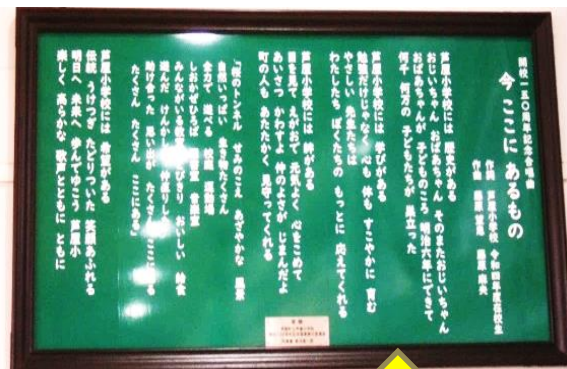 開校一五〇周年記念合唱曲
今 ここに あるもの
作詞 芦屋小学校 令和四年度在校生
芦屋小学校には 歴史がある
おじいちゃん おばあちゃん そのまたおじいちゃん
おばあちゃんが 子どものころ 明治六年にできて
何千 何万の 子どもたちが 巣立った
芦屋小学校には 学びがある
勉強だけじゃなく 心も 体も すこやかに 育む
やさしい 先生たちは
わたしたち ぼくたちの もっとに 応えてくれる
芦屋小学校には 絆がある
目を見て えがおで 元気よく 心をこめて
あいさつ かわすよ 仲のよさが じまんだよ
町の人も あたたかく 見守ってくれる
「桜のトンネル せみのこえ あざやかな 風景
自然いっぱい 生き物たくさん
全力で 遊べる 校園 運動場
しおかぜひろば 音楽室
みんながいる教室 とびきり おいしい 給食
遊んだ けんかした 仲直りした
助け合った 思い出が たくさん ここにある
たくさん たくさん ここにある」
芦屋小学校には 希望がある
伝統 うけつぎ たどりついた 笑顔あふれる
明日へ 未来へ 歩んでゆこう 芦屋小
楽しく 高らかな 歌声とともに ともに